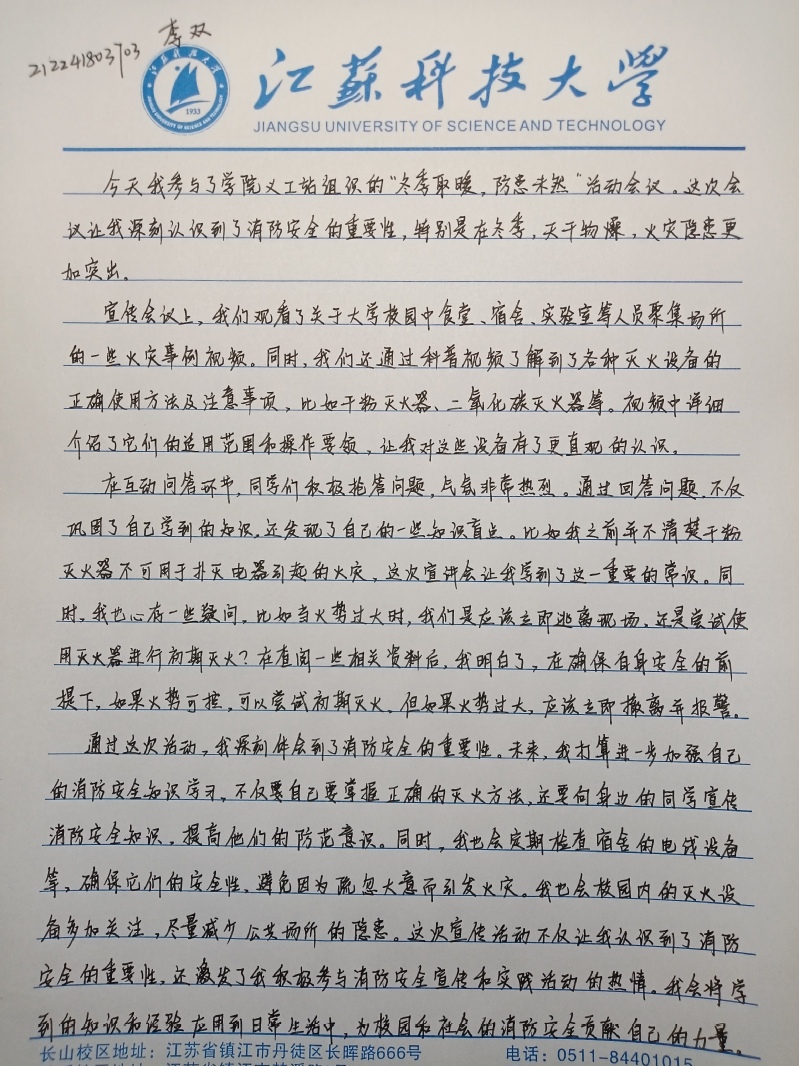 李双
212241803703
江苏科技大学
1933
江蘇科技大学
JIANGSU UNIVERSITY OF SCIENCE AND TECHNOLOGY
今天我参与了学院义工站组织的“冬季取暖，防患未然”活动会议。这次会
议让我深刻认识到了消防安全的重要性，特别是在冬季，天干物燥，火灾隐患更
加突出。
宣传会议上，我们观看了关于大学校园中食堂、宿舍、实验室等人员聚集场所
的一些火灾事例视频。同时，我们还通过科普视频了解到了各种灭火设备的
正确使用方法及注意事项，比如干粉灭火器、二氧化碳灭火器等。视频中详细
介绍了它们的适用范围和操作要领，让我对这些设备有了更直观的认识。
在互动问答环节，同学们积极抢答问题，气氛非常热烈。通过回答问题，不仅
巩固了自己学到的知识，还发现了自己的一些知识盲点。比如我之前并不清楚干粉
灭火器不可用于扑灭电器引起的火灾，这次宣讲会让我学到了这一重要的常识。同
时，我也心存一些疑问，比如当火势过大时，我们是应该立即逃离现场，还是尝试使
用灭火器进行初期灭火？在查阅一些相关资料后，我明白了，在确保自身安全的前
提下，如果火势可控，可以尝试初期灭火，但如果火势过大，应该立即撤离并报警。
通过这次活动，我深刻体会到了消防安全的重要性。未来，我打算进一步加强自己
的消防安全知识学习，不仅要自己要掌握正确的灭火方法，还要向身边的同学宣传
消防安全知识，提高他们的防范意识。同时，我也会定期检查宿舍的电线设备
等，确保它们的安全性，避免因为疏忽大意而引发火灾。我也会校园内的灭火设
备多加关注，尽量减少公共场所的隐患。这次宣传活动不仅让我认识到了消防
安全的重要性，还激发了我积极参与消防安全宣传和实践活动的热情。我会将学
到的知识和经验应用到日常生活中，为校园和社会的消防安全贡献自己的力量。
长山校区地址：江苏省镇江市丹徒区长晖路666号 电话：0511-84401015